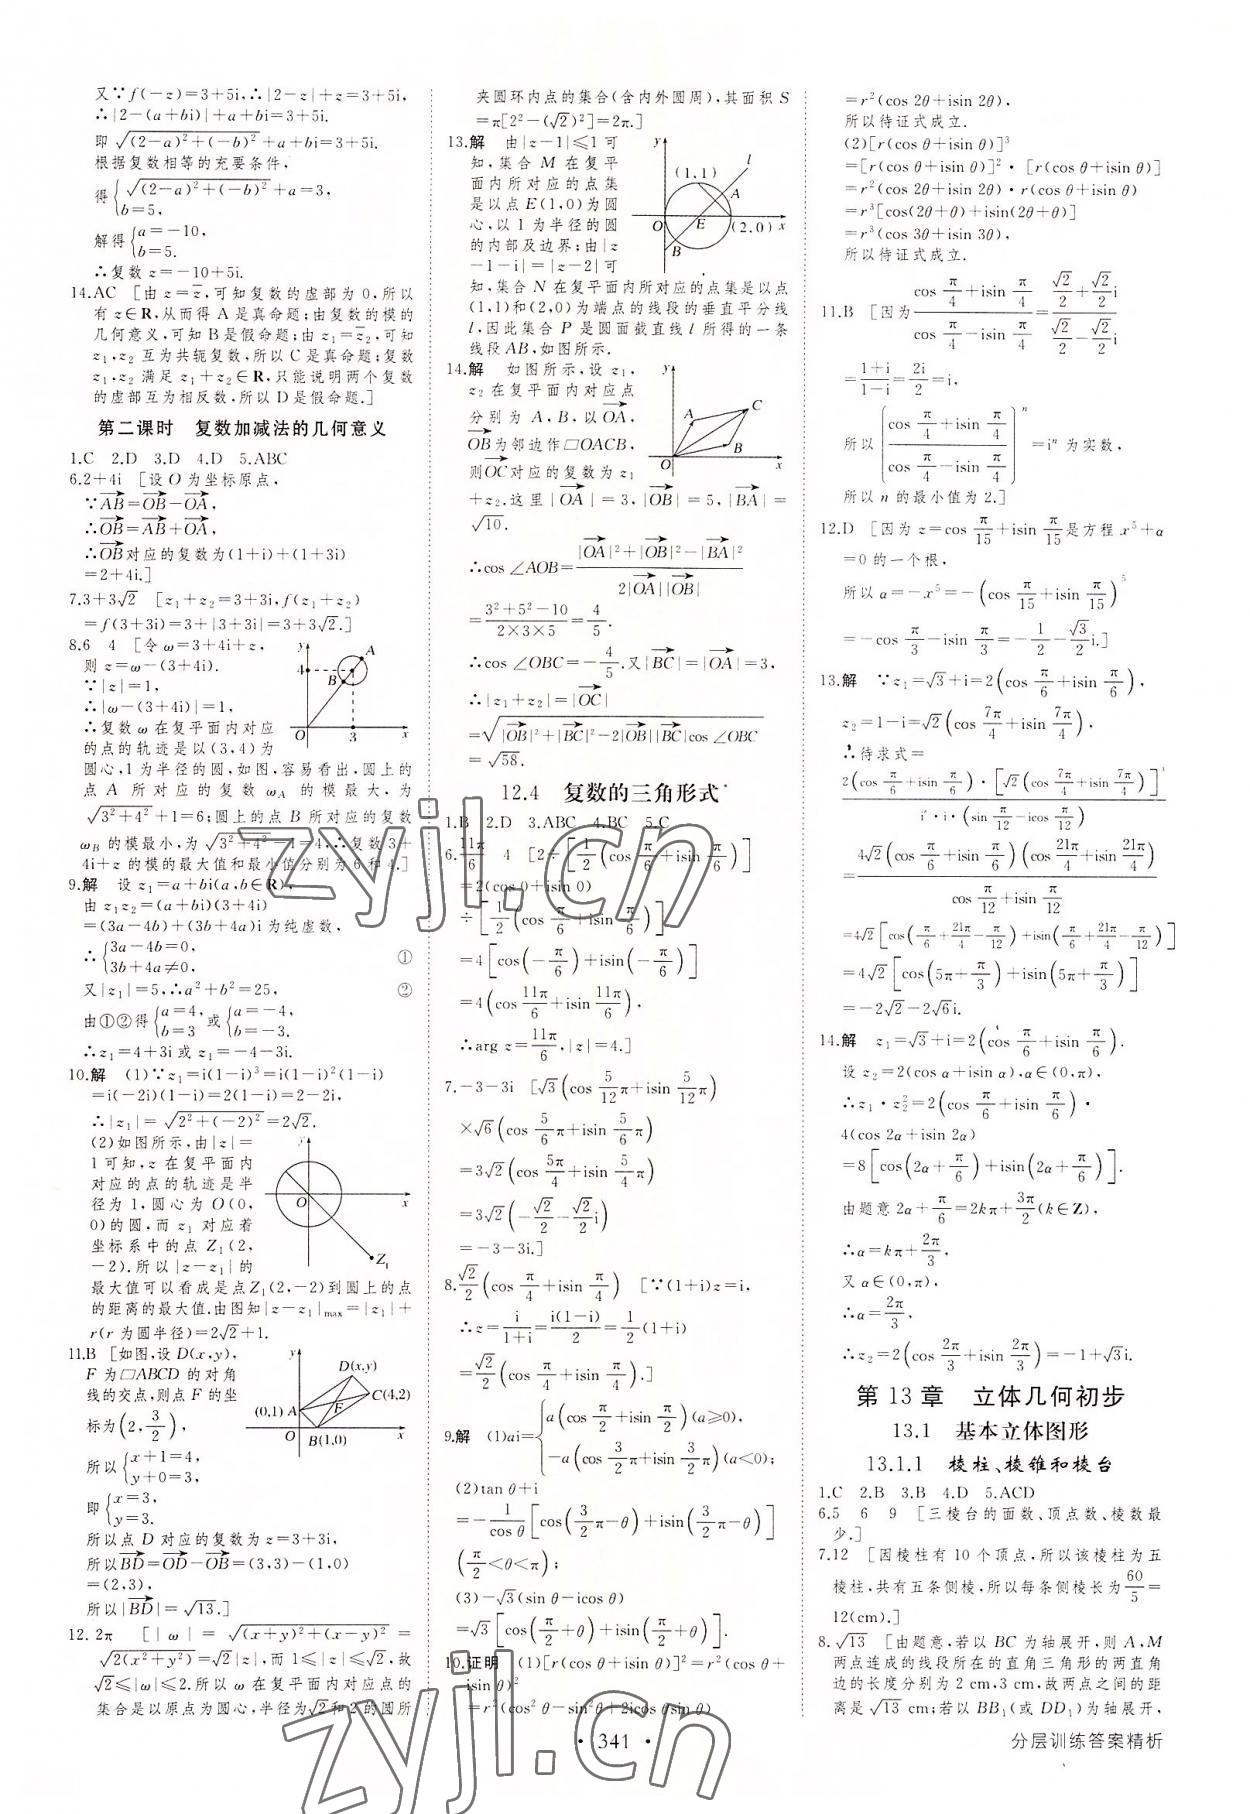 又∵f(-z)=3+5i,∴|2-z|+z=3+5i,
∴|2-(a+bi)|+a+bi=3+5i.
即√((2-a)²+(-b)²)+a+bi=3+5i.
根据复数相等的充要条件,
得{√((2-a)²+(-b)²)+a=3,
b=5,
解得{a=-10,
b=5.
∴复数z=-10+5i.
14.AC [由z=z̄,可知复数的虚部为0,所以
有z∈R,从而得A是真命题;由复数的模的
几何意义,可知B是假命题;由z₁=z̄₂,可知
z₁,z₂互为共轭复数,所以C是真命题;复数
z₁,z₂满足z₁+z₂∈R,只能说明两个复数
的虚部互为相反数,所以D是假命题.]
第二课时 复数加减法的几何意义
1.C 2.D 3.D 4.D 5.ABC
6.2+4i [设O为坐标原点,
∵AB→=OB→-OA→,
∴OB→=AB→+OA→,
∴OB→对应的复数为(1+i)+(1+3i)
=2+4i.]
7.3+3√2 [z₁+z₂=3+3i,f(z₁+z₂)
=f(3+3i)=3+|3+3i|=3+3√2.]
8.6 4 [令ω=3+4i+z,
则z=ω-(3+4i).
∵|z|=1,
∴|ω-(3+4i)|=1,
∴复数ω在复平面内对应
的点的轨迹是以(3,4)为
y 4 A B O 3 x
圆心,1为半径的圆,如图,容易看出,圆上的
点A所对应的复数ω_A的模最大,为
√(3²+4²)+1=6;圆上的点B所对应的复数
ω_B的模最小,为√(3²+4²)-1=4,∴复数3+
4i+z的模的最大值和最小值分别为6和4.]
9.解 设z₁=a+bi(a,b∈R),
由z₁z₂=(a+bi)(3+4i)
=(3a-4b)+(3b+4a)i为纯虚数,
∴{3a-4b=0,
3b+4a≠0, ①
又|z₁|=5,∴a²+b²=25, ②
由①②得{a=4, b=3 或{a=-4, b=-3.
∴z₁=4+3i或z₁=-4-3i.
10.解 (1)∵z₁=i(1-i)³=i(1-i)²(1-i)
=i(-2i)(1-i)=2(1-i)=2-2i,
∴|z₁|=√(2²+(-2)²)=2√2.
(2)如图所示,由|z|=
1可知,z在复平面内
对应的点的轨迹是半
径为1,圆心为O(0,
0)的圆,而z₁对应着
坐标系中的点Z₁(2,
-2).所以|z-z₁|的
y O x Z₁
最大值可以看成是点Z₁(2,-2)到圆上的点
的距离的最大值.由图知|z-z₁|max=|z₁|+
r(r为圆半径)=2√2+1.
11.B [如图,设D(x,y),
F为▱ABCD的对角
线的交点,则点F的坐
标为(2,3/2),
所以{x+1=4,
y+0=3,
y D(x,y) C(4,2) F (0,1)A O B(1,0) x
即{x=3,
y=3.
所以点D对应的复数为z=3+3i,
所以BD→=OD→-OB→=(3,3)-(1,0)
=(2,3),
所以|BD→|=√13.]
12. 2π [|ω|=√((x+y)²+(x-y)²)=
√(2(x²+y²))=√2|z|,而1≤|z|≤√2,故
√2≤|ω|≤2.所以ω在复平面内对应点的
集合是以原点为圆心,半径为√2和2的圆所
夹圆环内点的集合(含内外圆周),其面积S
=π[2²-(√2)²]=2π.]
13.解 由|z-1|≤1可
知,集合M在复平
面内所对应的点集
是以点E(1,0)为圆
心,以1为半径的圆
的内部及边界;由|z
-1-i|=|z-2|可
y l (1,1) A O E (2,0) x B
知,集合N在复平面内所对应的点集是以点
(1,1)和(2,0)为端点的线段的垂直平分线
l,因此集合P是圆面截直线l所得的一条
线段AB,如图所示.
14.解 如图所示,设z₁,
z₂在复平面内对应点
分别为A,B,以OA→,
OB→为邻边作▱OACB,
则OC→对应的复数为z₁
y A C B O x
+z₂.这里|OA→|=3,|OB→|=5,|BA→|=
√10.
∴cos∠AOB=(|OA→|²+|OB→|²-|BA→|²)/(2|OA→||OB→|)
=(3²+5²-10)/(2×3×5)=4/5.
∴cos∠OBC=-4/5.又|BC→|=|OA→|=3,
∴|z₁+z₂|=|OC→|
=√(|OB→|²+|BC→|²-2|OB→||BC→|cos∠OBC)
=√58.
12.4 复数的三角形式
1.B 2.D 3.ABC 4.BC 5.C
6.11π/6 4 [2÷[1/2(cos π/6+isin π/6)]
=2(cos 0+isin 0)
÷[1/2(cos π/6+isin π/6)]
=4[cos(-π/6)+isin(-π/6)]
=4(cos 11π/6+isin 11π/6),
∴arg z=11π/6,|z|=4.]
7.-3-3i [√3(cos 5/12π+isin 5/12π)
×√6(cos 5/6π+isin 5/6π)
=3√2(cos 5π/4+isin 5/4π)
=3√2(-√2/2-√2/2i)
=-3-3i.]
8.√2/2(cos π/4+isin π/4) [∵(1+i)z=i,
∴z=i/(1+i)=i(1-i)/2=1/2(1+i)
=√2/2(cos π/4+isin π/4).]
9.解 (1)ai={a(cos π/2+isin π/2)(a≥0),
-a(cos 3/2π+isin 3/2π)(a<0);
(2)tan θ+i
=-1/cos θ[cos(3/2π-θ)+isin(3/2π-θ)]
(π/2<θ<π);
(3)-√3(sin θ-icos θ)
=√3[cos(π/2+θ)+isin(π/2+θ)].
10.证明 (1)[r(cos θ+isin θ)]²=r²(cos θ+
isin θ)²
=r²(cos² θ-sin² θ+2icos θsin θ)
=r²(cos 2θ+isin 2θ).
所以待证式成立.
(2)[r(cos θ+isin θ)]³
=[r(cos θ+isin θ)]²·[r(cos θ+isin θ)]
=r²(cos 2θ+isin 2θ)·r(cos θ+isin θ)
=r³[cos(2θ+θ)+isin(2θ+θ)]
=r³(cos 3θ+isin 3θ),
所以待证式成立.
11.B [因为(cos π/4+isin π/4)/(cos π/4-isin π/4)=(√2/2+√2/2i)/(√2/2-√2/2i)
=(1+i)/(1-i)=2i/2=i,
所以[(cos π/4+isin π/4)/(cos π/4-isin π/4)]ⁿ=iⁿ为实数,
所以n的最小值为2.]
12.D [因为z=cos π/15+isin π/15是方程x⁵+α
=0的一个根,
所以α=-x⁵=-(cos π/15+isin π/15)⁵
=-cos π/3-isin π/3=-1/2-√3/2i.]
13.解 ∵z₁=√3+i=2(cos π/6+isin π/6),
z₂=1-i=√2(cos 7π/4+isin 7π/4),
∴待求式=
2(cos π/6+isin π/6)·[√2(cos 7π/4+isin 7π/4)]³/(i⁴·i·(sin π/12-icos π/12))
=4√2(cos π/6+isin π/6)(cos 21π/4+isin 21π/4)/(cos π/12+isin π/12)
=4√2[cos(π/6+21π/4-π/12)+isin(π/6+21π/4-π/12)]
=4√2[cos(5π+π/3)+isin(5π+π/3)]
=-2√2-2√6i.
14.解 z₁=√3+i=2(cos π/6+isin π/6).
设z₂=2(cos α+isin α),α∈(0,π),
∴z₁·z₂²=2(cos π/6+isin π/6)·
4(cos 2α+isin 2α)
=8[cos(2α+π/6)+isin(2α+π/6)].
由题意2α+π/6=2kπ+3π/2(k∈Z),
∴α=kπ+2π/3,
又α∈(0,π),
∴α=2π/3,
∴z₂=2(cos 2π/3+isin 2π/3)=-1+√3i.
第13章 立体几何初步
13.1 基本立体图形
13.1.1 棱柱、棱锥和棱台
1.C 2.B 3.B 4.D 5.ACD
6.5 6 9 [三棱台的面数、顶点数、棱数最
少.]
7.12 [因棱柱有10个顶点,所以该棱柱为五
棱柱,共有五条侧棱,所以每条侧棱长为60/5=
12(cm).]
8.√13 [由题意,若以BC为轴展开,则A,M
两点连成的线段所在的直角三角形的两直角
边的长度分别为2 cm,3 cm,故两点之间的距
离为√13 cm;若以BB₁(或DD₁)为轴展开,
·341·
分层训练答案精析
zyjl.cn
zyjl.cn